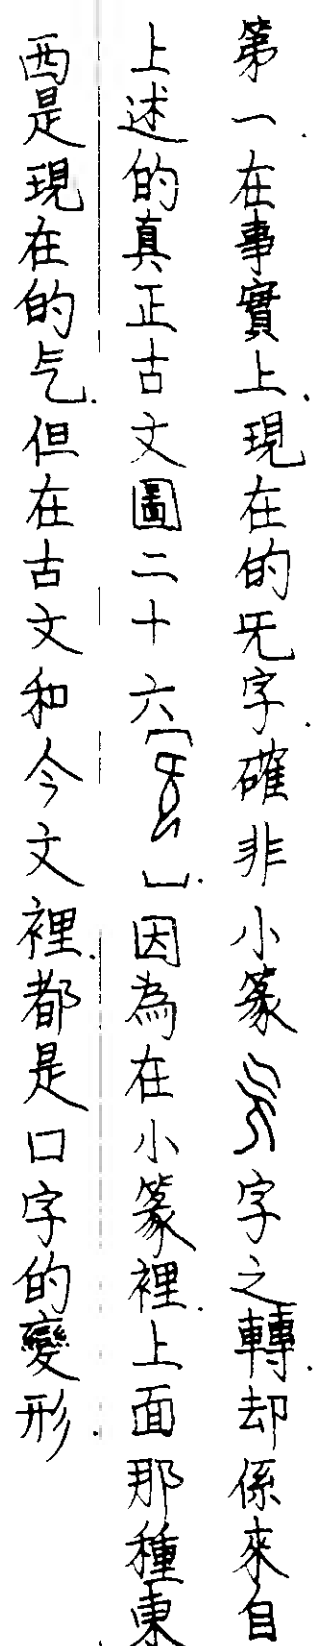 第一.在事實上.現在的旡字.確非小篆字之轉.却係來自
上述的真正古文圖二十六[].因為在小篆裡.上面那種東
西是現在的气.但在古文和今文裡.都是口字的變形.